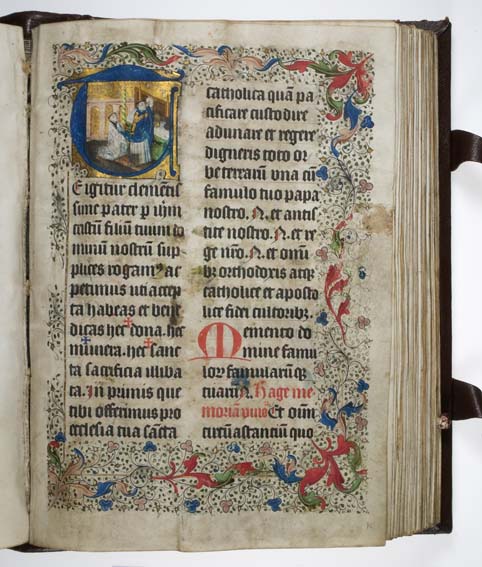 T
E igitur clementis
sime pater p ihm
cristum filiū tuum do
minum nostrū sup
plices rogamꝰ ac
petimus uti accep
ta habeas et bene
dicas hec dona. hec
munera. hec sanc
ta sacrificia illiba
ta. In primis que
tibi offerimus pro
ecclesia tua sancta
catholica quā pa
cificare custodire
adunare et regere
digneris toto or
be terrarū una cū
famulo tuo papa
nostro. N. et antis
tite nostro. N. et re
ge nr̄o. N. et omi
bꝫ orthodoxis atqꝫ
catholice et aposto
lice fidei cultoribꝫ.
Memento do
mine famu
lorꝫ famularūqꝫ
tuarū N. Hage me
moriā viuoꝝ Et oīm
circūastantiū quo